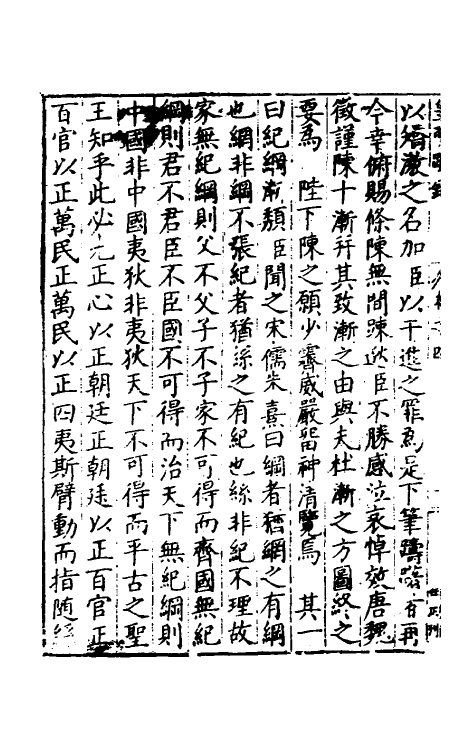 以矯激之名加臣以干進之罪為是下筆躊躇有再
今幸俯賜條陳無間踈逖臣不勝感泣哀悼效唐魏
徵謹陳十漸并其致漸之由與夫杜漸之方圖終之
要為　陛下陳之願少霽威嚴留神清覽焉　其一
曰紀綱漸頹臣聞之宋儒朱熹曰綱者猶網之有綱
也網非綱不張紀者猶絲之有紀也絲非紀不理故
家無紀綱則父不父子不子家不可得而齊國無紀
綱則君不君臣不臣國不可得而治天下無紀綱則
中國非中國夷狄非夷狄天下不可得而平古之聖
王知乎此必先正心以正朝廷正朝廷以正百官正
百官以正萬民正萬民以正四夷斯臂動而指隨